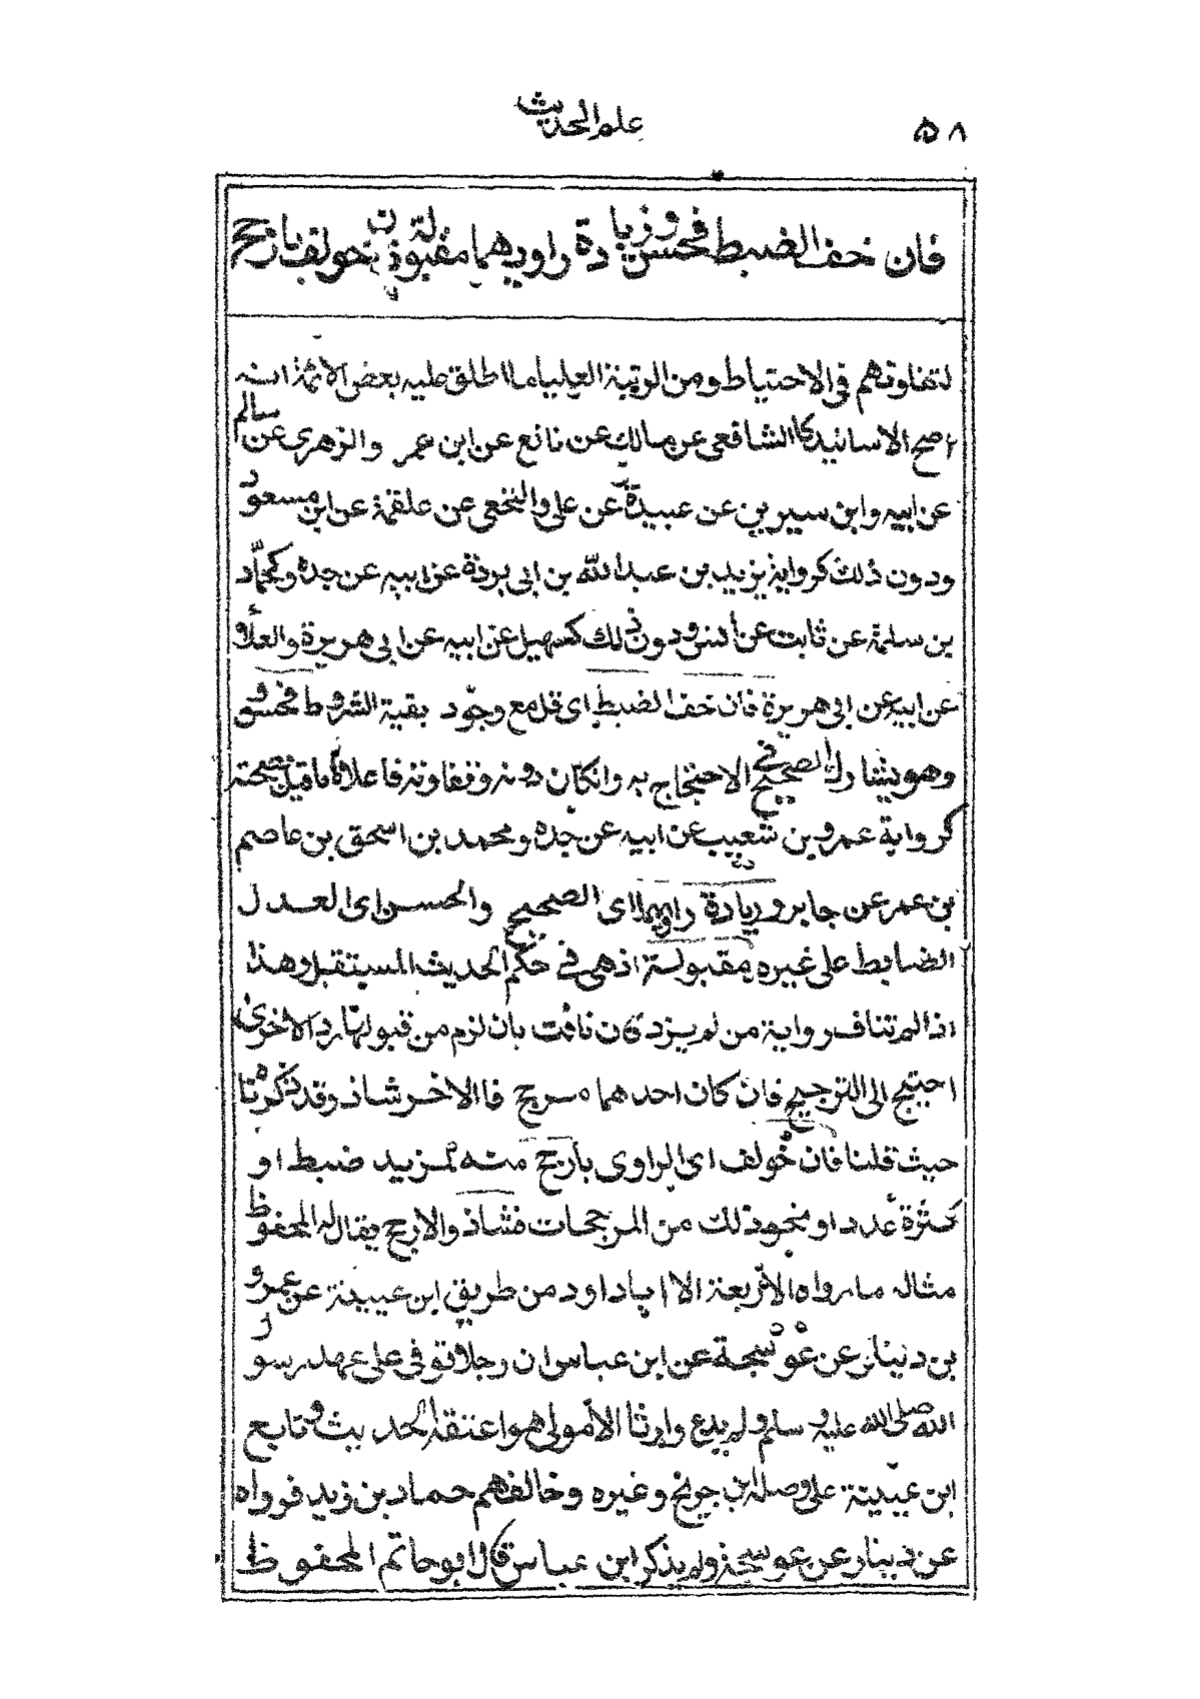 ۵۸
علم الحديث
فان خف الضبط فحسن وزيادة راويهما مقبولة فان خولف بارجح
لتفاوتهم فى الاحتياط ومن الرتبة العليا ما اطلق عليه بعض الائمة انه
اصح الاسانيد كالشافعى عن مالك عن نافع عن ابن عمر والزهرى عن سالم
عن ابيه وابن سيرين عن عبيدة عن على والنخعى عن علقمة عن ابن مسعود
ودون ذلك كرواية يزيد بن عبد الله بن ابى بردة عن ابيه عن جده وكحماد
بن سلمة عن ثابت عن انس ودون ذلك كسهيل عن ابيه عن ابى هريرة والعلاء
عن ابيه عن ابى هريرة فان خف الضبط اى قل مع وجود بقية الشروط فحسن و
وهو يشارك الصحيح فى الاحتجاج به وانكان دونه وتفاوته فاعلاه ما قيل بصحته
كرواية عمرو بن شعيب عن ابيه عن جده ومحمد بن اسحق بن عاصم
بن عمر عن جابر وزيادة راويهما اى الصحيح والحسن اى العدل
الضابط على غيره مقبولة اذ هى فى حكم الحديث المستقل وهذا
اذا لم تناف رواية من لم يزد فان نافت بان لزم من قبولها رد الاخرى
احتيج الى الترجيح فان كان احدهما مرجح فالاخر شاذ وقد ذكرته
حيث قلنا فان خولف اى الراوى بارجح منه لمزيد ضبط او
كثرة عدد او نحو ذلك من المرجحات فشاذ والارجح يقال له المحفوظ
مثاله ما رواه الاربعة الا ابا داود من طريق ابن عيينة عن عمرو
بن دينار عن عوسجة عن ابن عباس ان رجلا توفى على عهد رسول
الله صلى الله عليه وسلم ولم يدع وارثا الا مولى هو اعتقه الحديث وتابع
ابن عيينة على وصله ابن جريج وغيره وخالفهم حماد بن زيد فرواه
عن دينار عن عوسجة ولم يذكر ابن عباس قال ابو حاتم المحفوظ